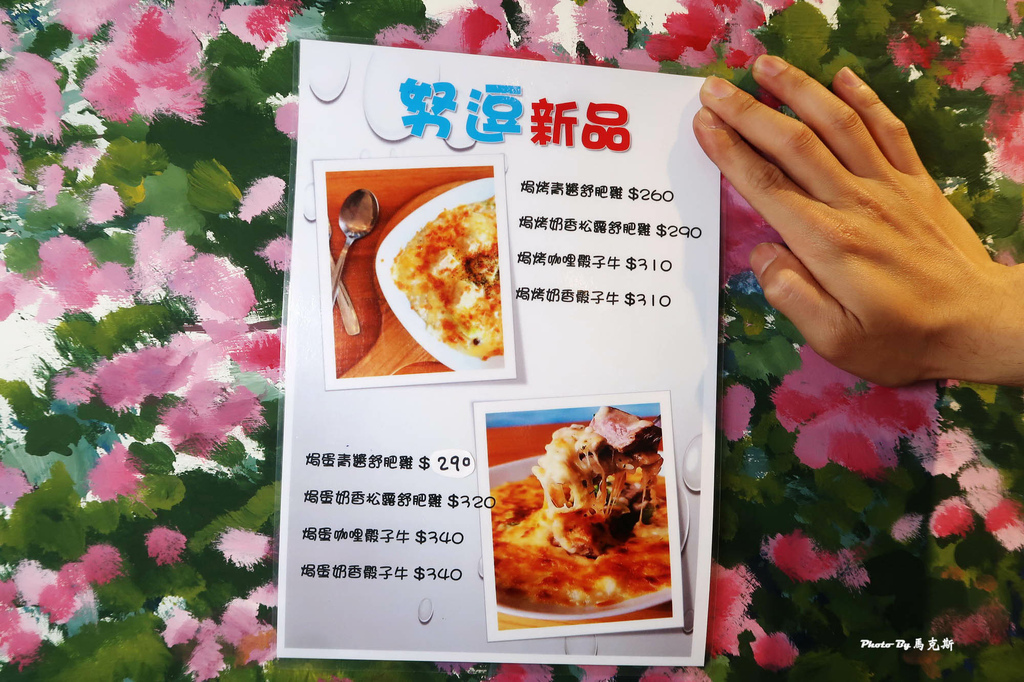 努逗新品
焗烤青醬舒肥雞 $260
焗烤奶香松露舒肥雞 $290
焗烤咖哩骰子牛 $310
焗烤奶香骰子牛 $310
焗蛋青醬舒肥雞 $ 290
焗蛋奶香松露舒肥雞 $320
焗蛋咖哩骰子牛 $340
焗蛋奶香骰子牛 $340
Photo By 馬克斯